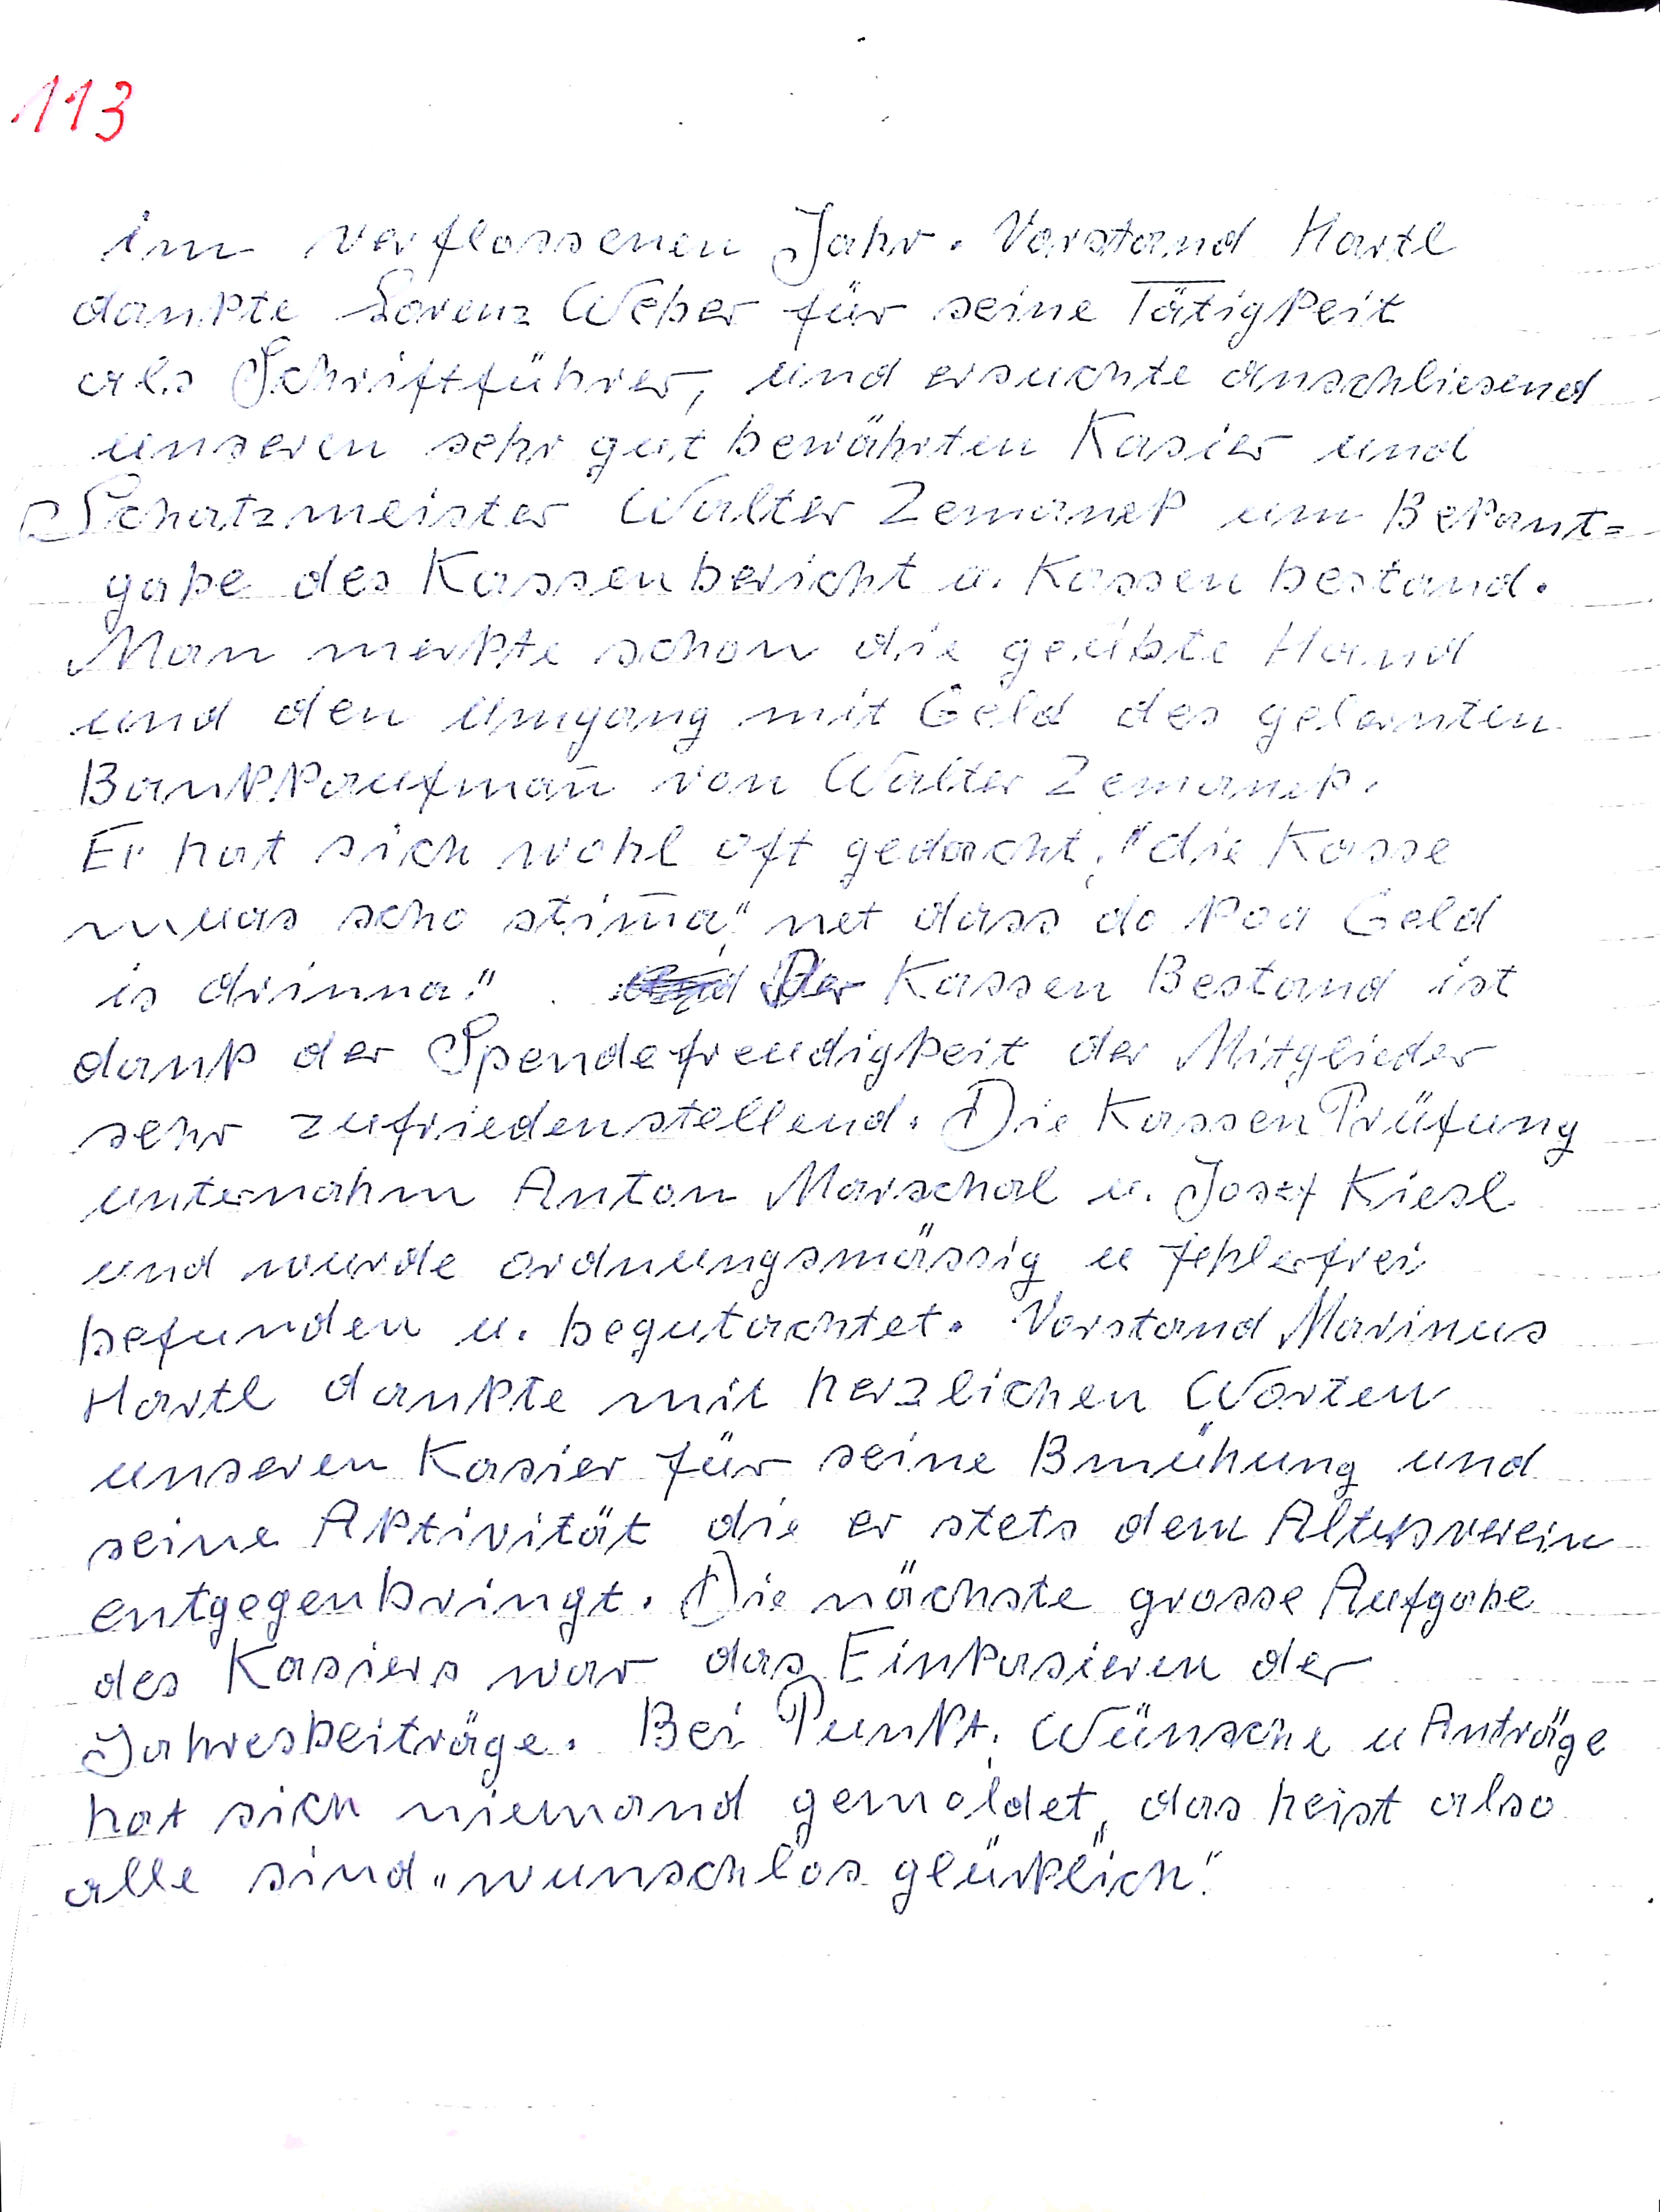 113
im verflossenen Jahr. Vorstand Hartl
dankte Lorenz Weber für seine Tätigkeit
als Schriftführer, und ersuchte anschliesend
unseren sehr gut bewährten Kasier und
Schatzmeister Walter Zemanek um Bekant=
gabe des Kassenbericht u. Kassenbestand.
Man merkte schon die geübte Hand
und den Umgang mit Geld des gelernten
Bankkaufman̄ von Walter Zemanek.
Er hat sich wohl oft gedacht, "die Kasse
muas scho stim̄a," net dass do koa Geld
is drinna." . Der Kassen Bestand ist
dank der Spendefreudigkeit der Mitglieder
sehr zufriedenstellend. Die Kassen Prüfung
unternahm Anton Marschal u. Josef Kiesl
und wurde ordnungsmässig u fehlerfrei
befunden u. begutachtet. Vorstand Marinus
Hartl dankte mit herzlichen Worten
unseren Kasier für seine Bmühung und
seine Aktivität die er stets dem Altersverein
entgegenbringt. Die nächste grosse Aufgabe
des Kasiers war das Einkasieren der
Jahresbeiträge. Bei Punkt, Wünsche u Anträge
hat sich niemand gemeldet, das heist also
alle sind "wunschlos glücklich".